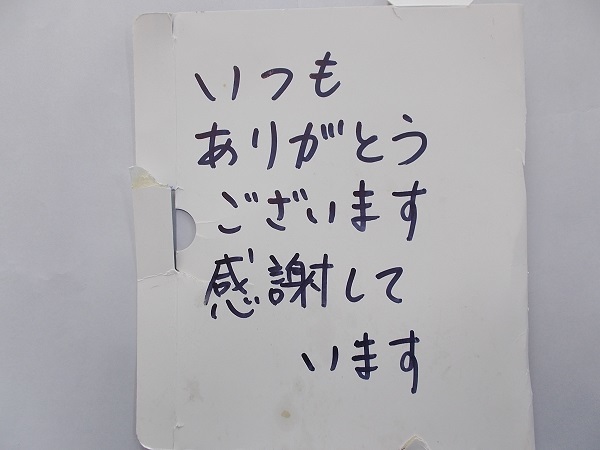 いつも
ありがとう
ございます
感謝して
います